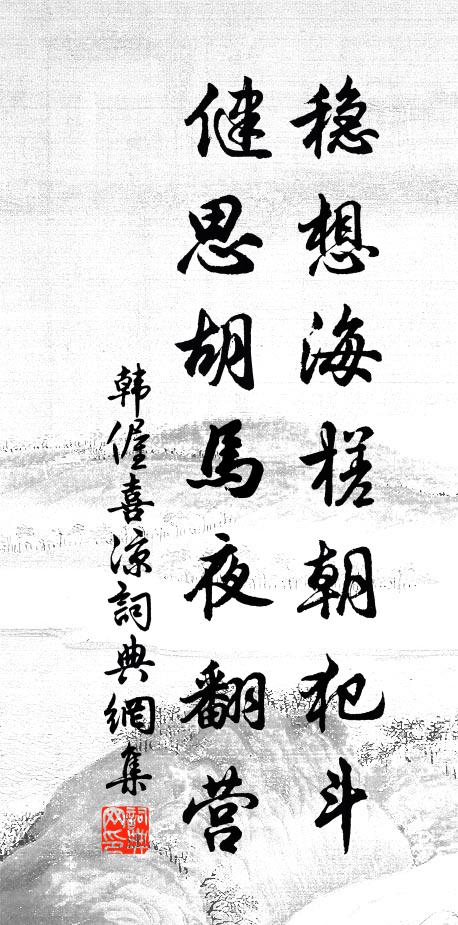 穏想海槎朝犯斗
健思胡馬夜翻营
韩偓喜凉詞典網集